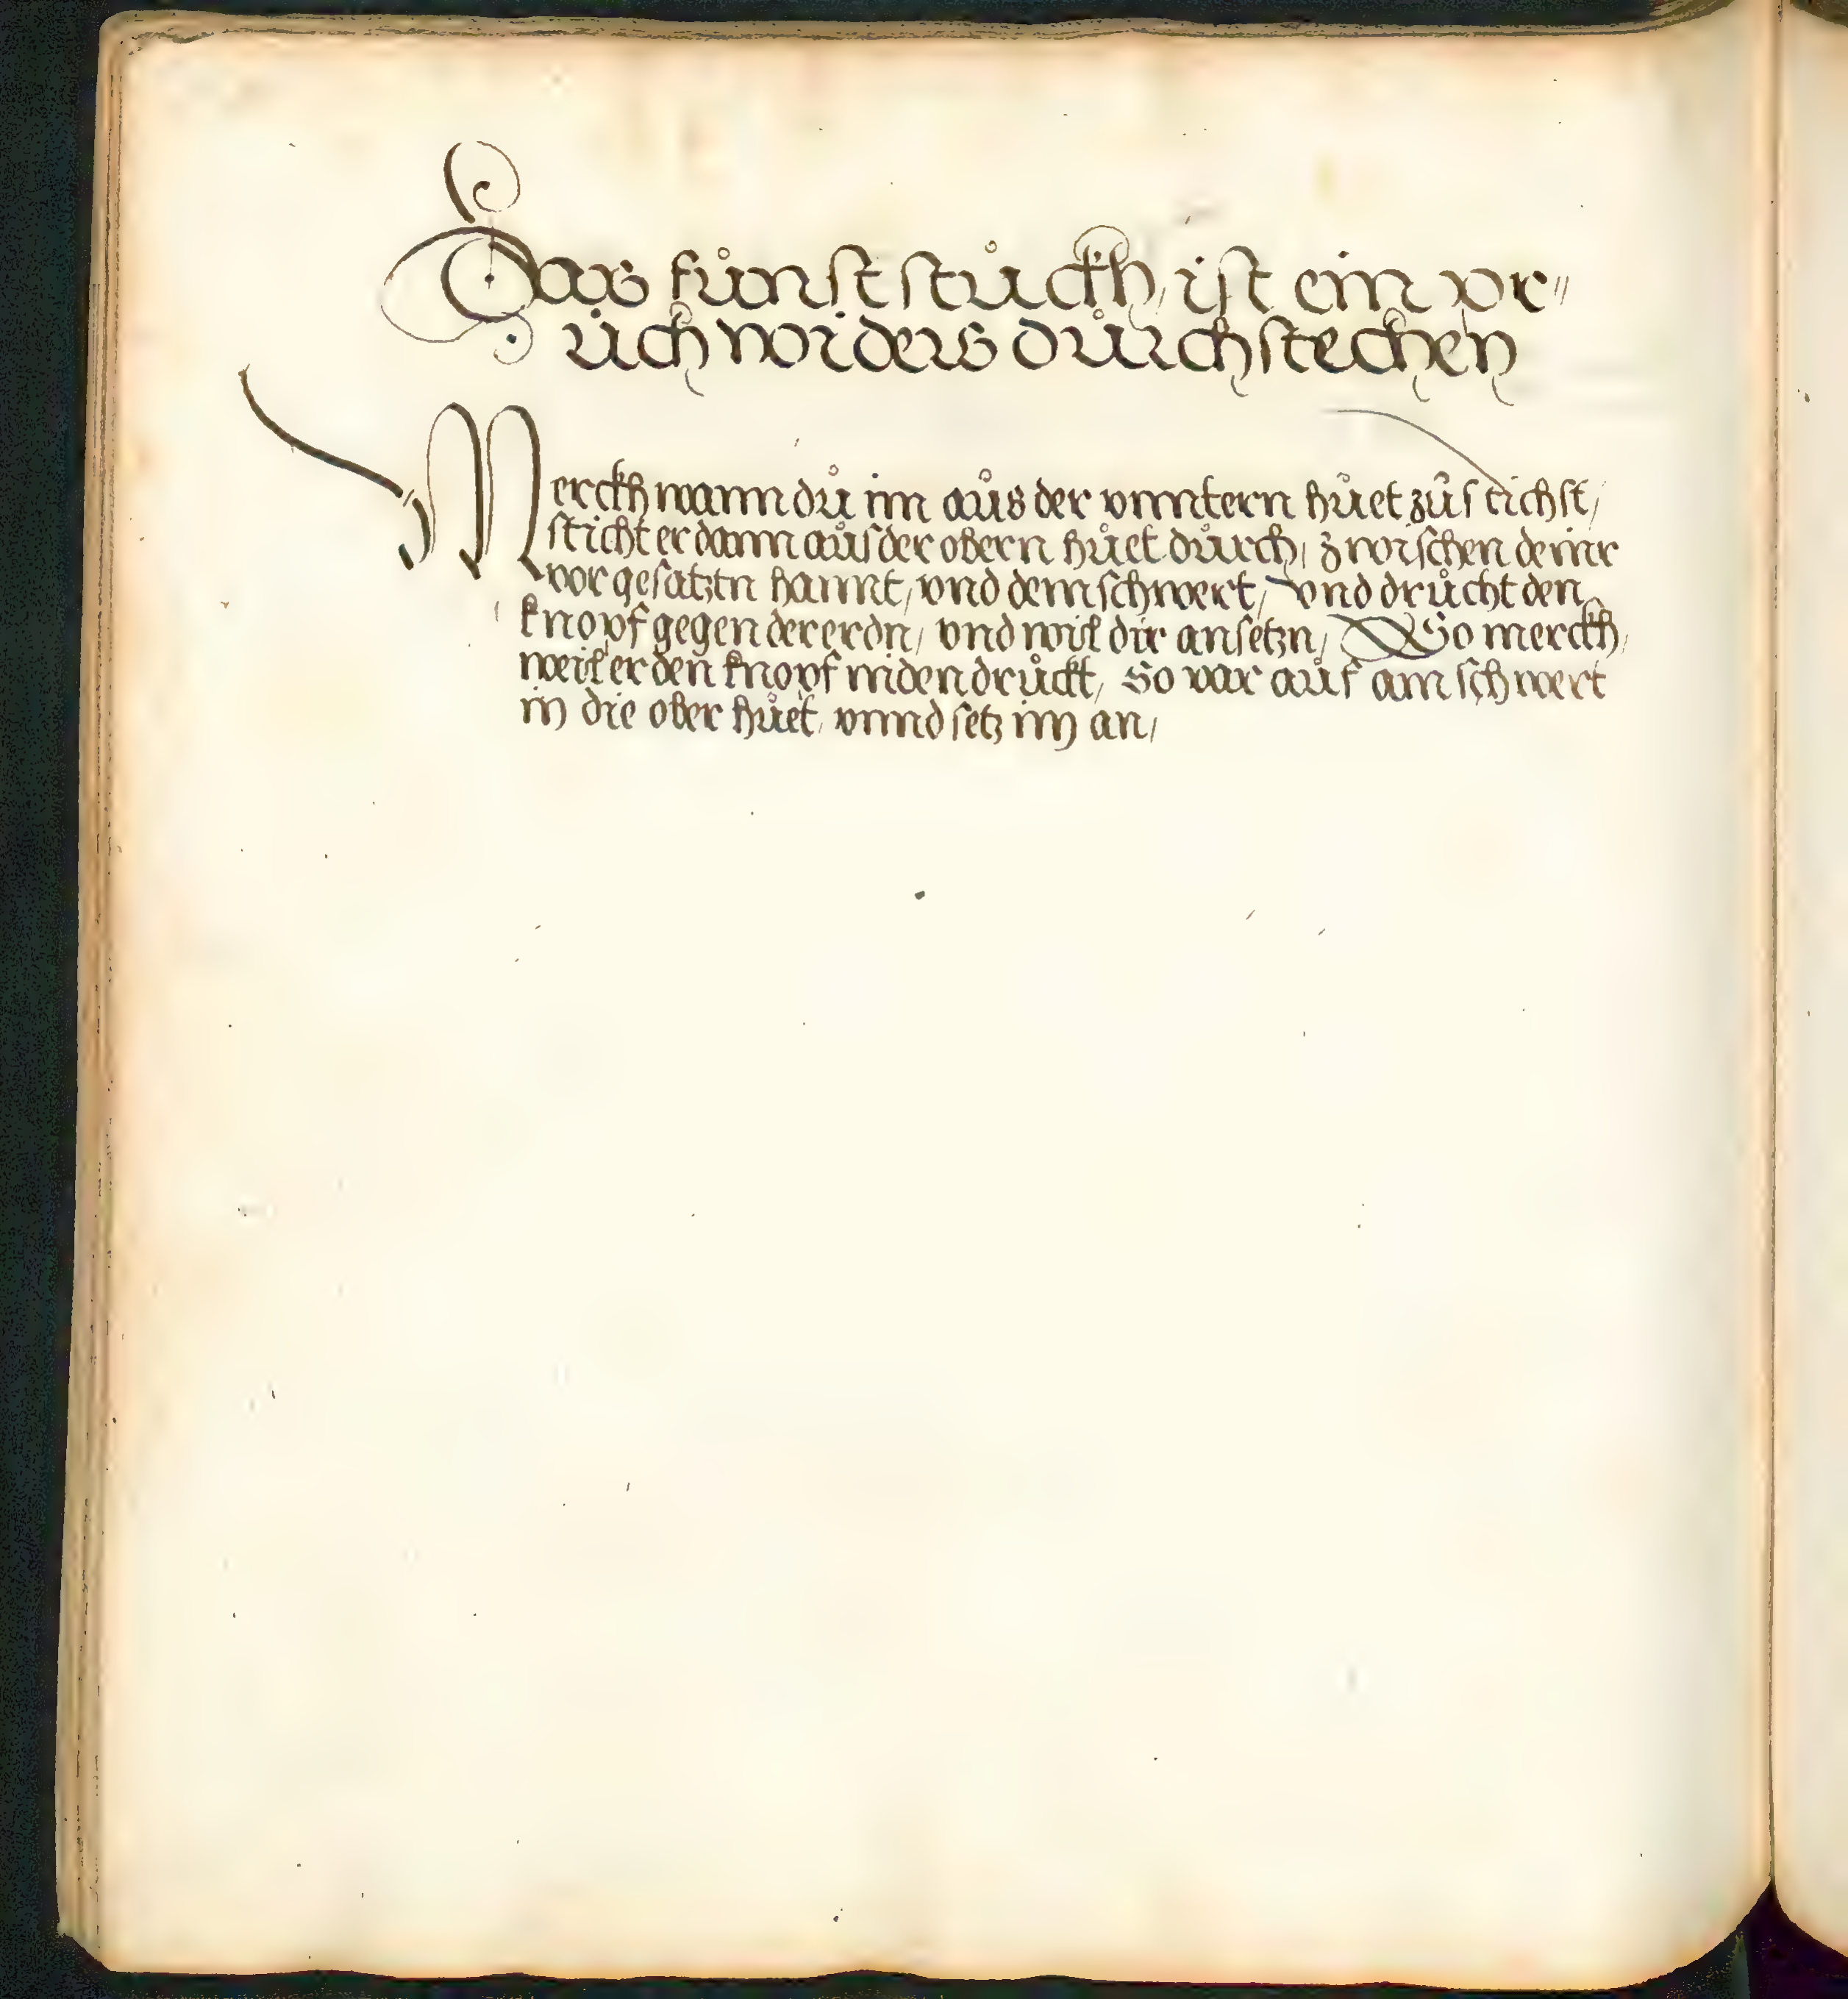 Das fůnft stůckh, ist ein pr〃
ůch widers důrchstechen
Merckh wann dů im aůs der vnntern hůet zůstichst,
sticht er dann aůs der obern hůet důrch, zwischen deinr
vorgesatztn hannt, vnd dem schwert, vnd drůcht den
knopf gegen der erdn, vnd wil dir ansetzn, So merckh,
weil er den knopf niden drůckt, So var aůf am schwert
in die ober hůet, vnnd setz im an,